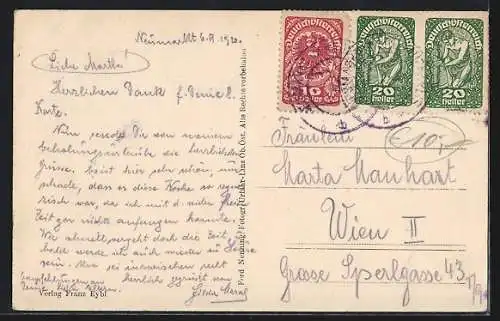 Neumarkt 6.9.1920.
Liebe Martha!
Herzlichen Dank f. Deine l.
Karte.
Nun sende Dir von meinem
Erholungsurlaube die herzlichsten
Grüsse. Es ist hier sehr schön, nur
schade, dass es diese Woche so regne-
risch war, da ich mit d. vielen freien
Zeit gar nichts anfangen konnte.
Wie schnell vergeht doch die Zeit,
bald werde ich auch wieder zu Hause
sein. Sei inzwischen recht
herzlich gegrüsst von
Verlag Franz Eybl
Ferd. Nemling Fotogr. Urfahr-Linz Ob. Öst. Alle Rechte vorbehalten
Deutschösterreich
10
Heller
Deutschösterreich
20
Heller
Deutschösterreich
20
Heller
€10,-
Fräulein
Marta Manhart
Wien II
Grosse Sperlgasse 43